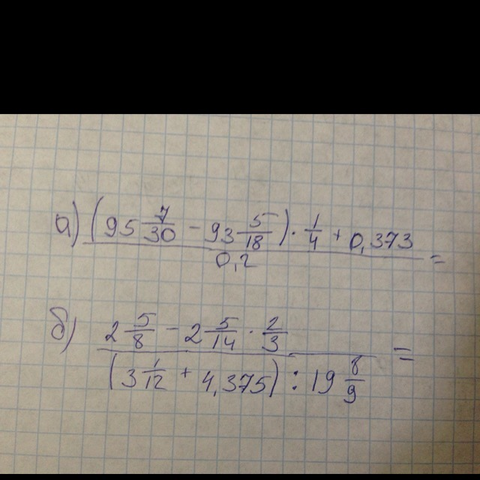 а) (95 7/30 - 93 5/18) · 1/4 + 0,373
0,2 =
б) 2 5/8 - 2 5/14 · 2/3
(3 1/12 + 4,375) : 19 8/9 =